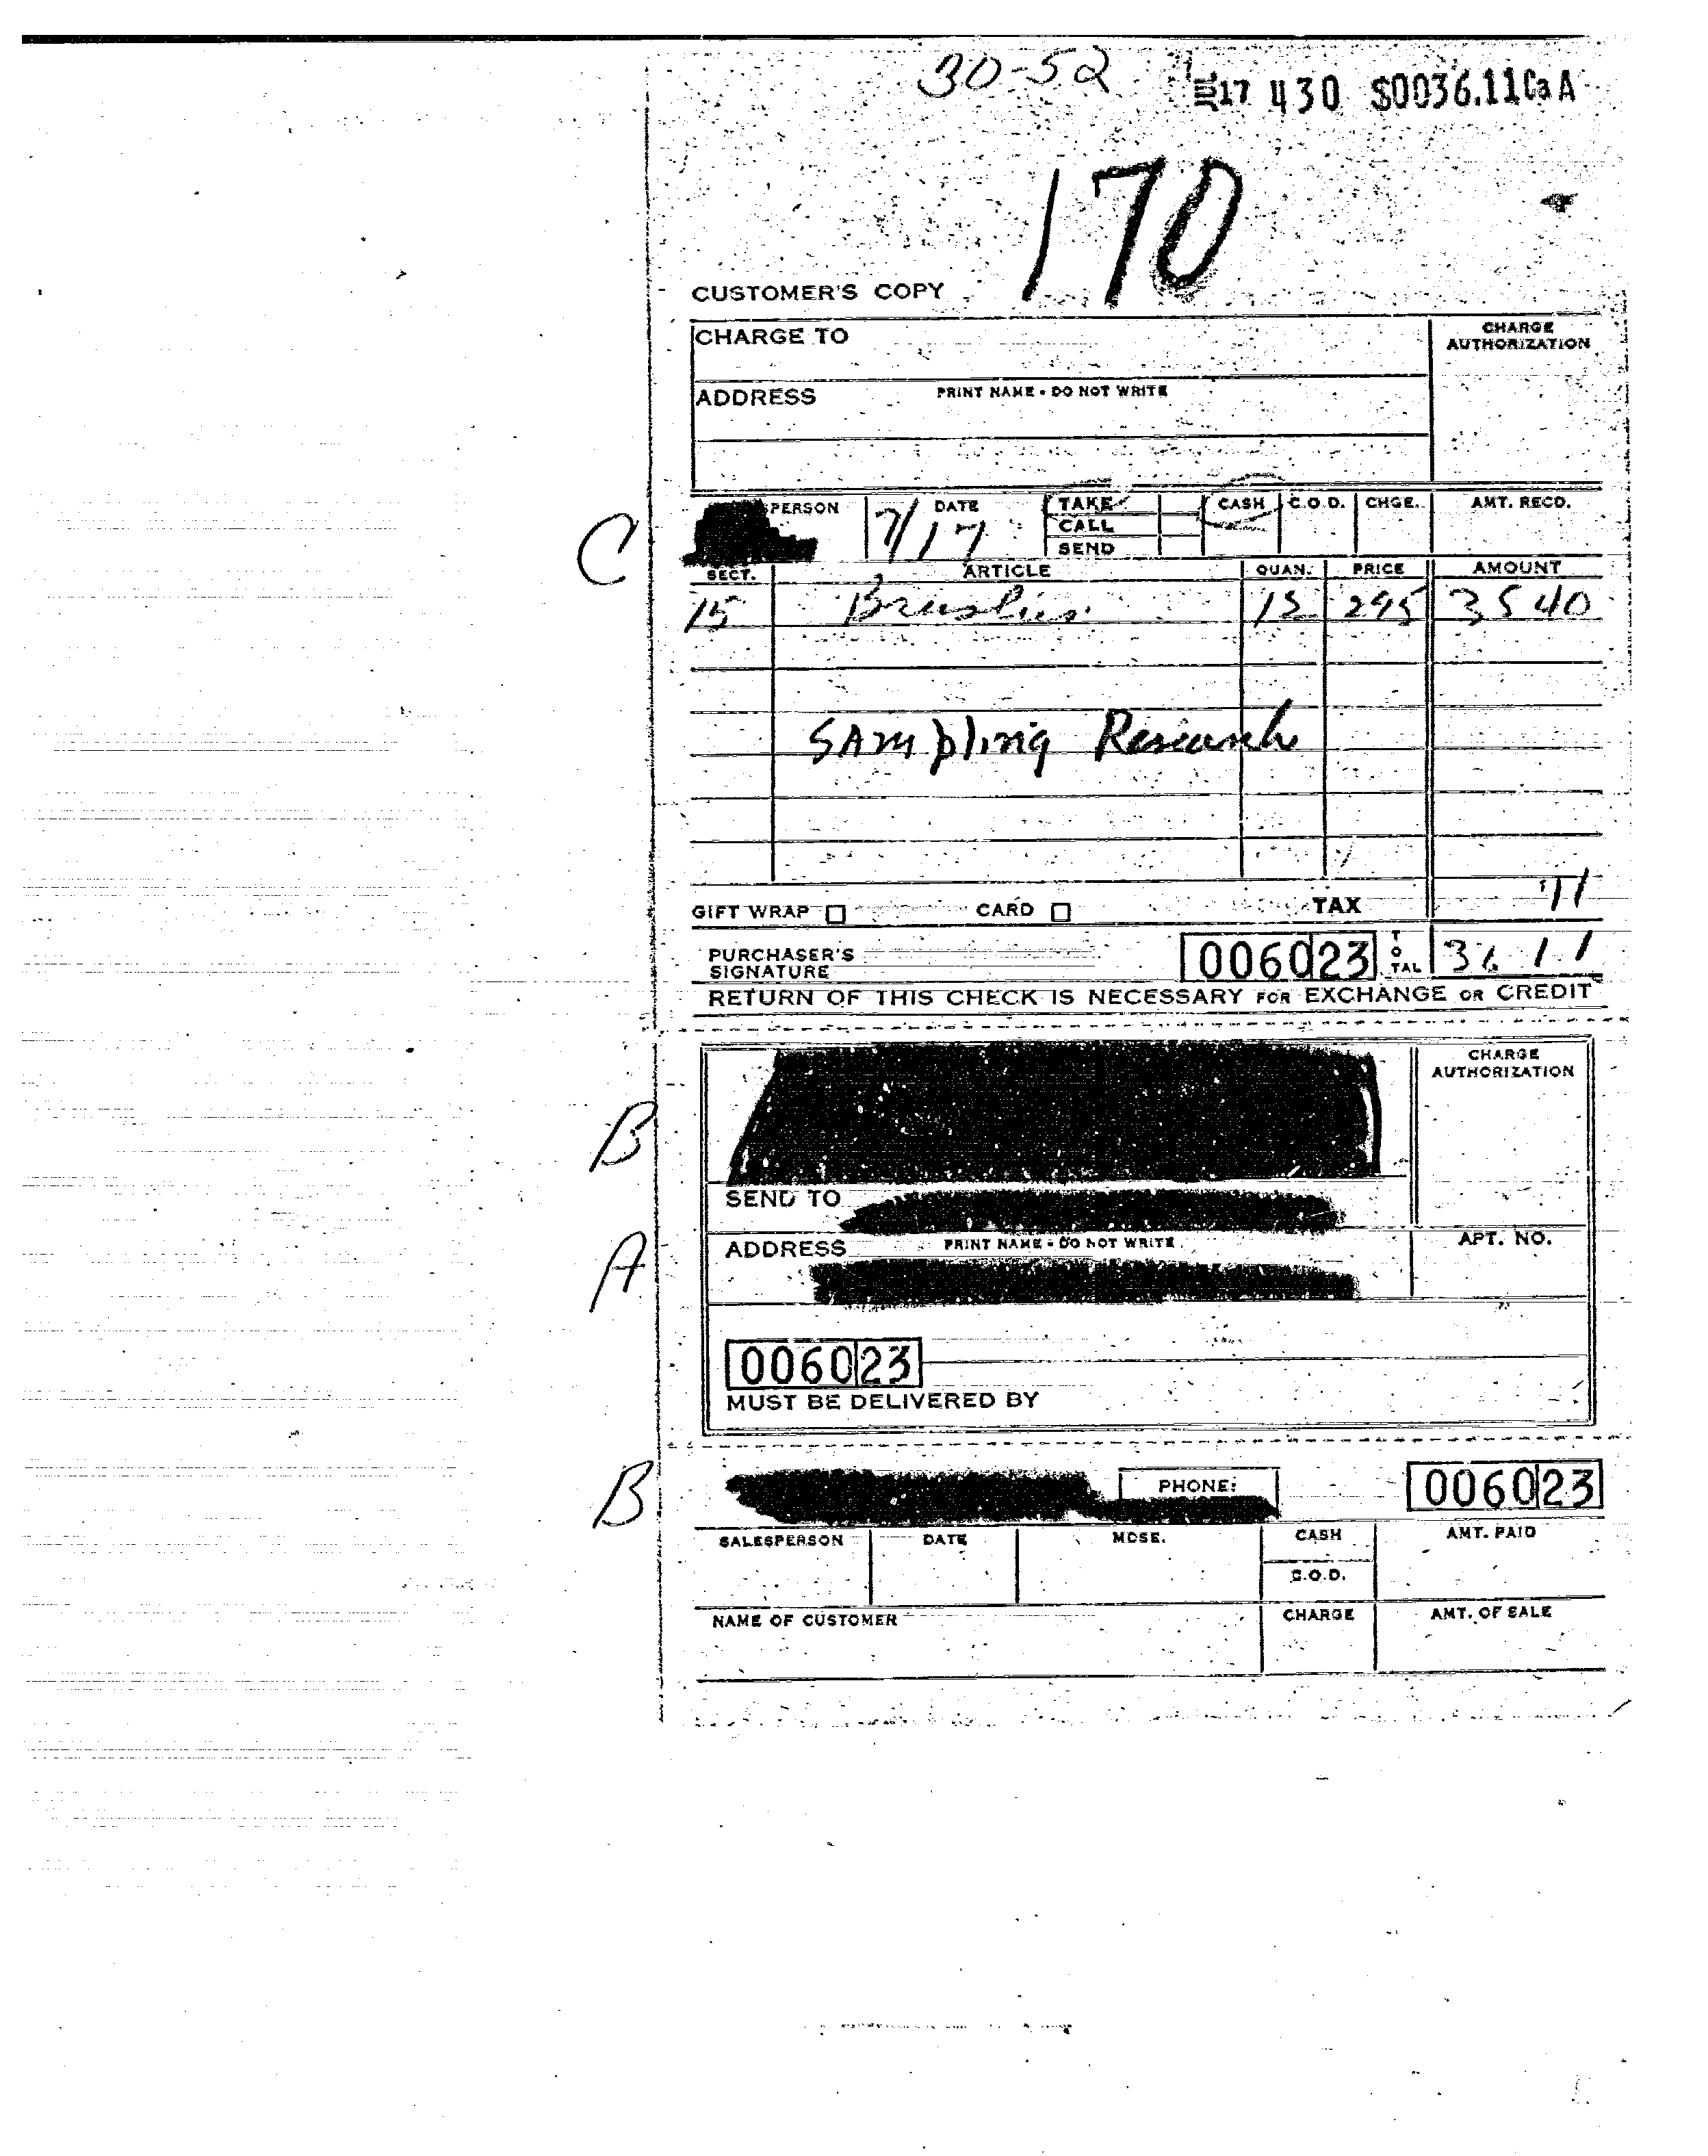 30-52
JUL 17 430 $0036.11CaA
170
CUSTOMER'S COPY
CHARGE TO
CHARGE AUTHORIZATION
PRINT NAME - DO NOT WRITE
ADDRESS
PERSON DATE TAKE CASH C.O.D. CHGE. AMT. RECD.
7/17 CALL
C SEND
SECT. ARTICLE QUAN. PRICE AMOUNT
15 Brushes 12 295 35 40
Sampling Research
GIFT WRAP CARD TAX 71
PURCHASER'S SIGNATURE 006023 TOTAL 36 11
RETURN OF THIS CHECK IS NECESSARY FOR EXCHANGE OR CREDIT
CHARGE AUTHORIZATION
B
SEND TO
PRINT NAME - DO NOT WRITE APT. NO.
A ADDRESS
006023
MUST BE DELIVERED BY
B PHONE: 006023
SALESPERSON DATE MDSE. CASH AMT. PAID
C.O.D.
NAME OF CUSTOMER CHARGE AMT. OF SALE